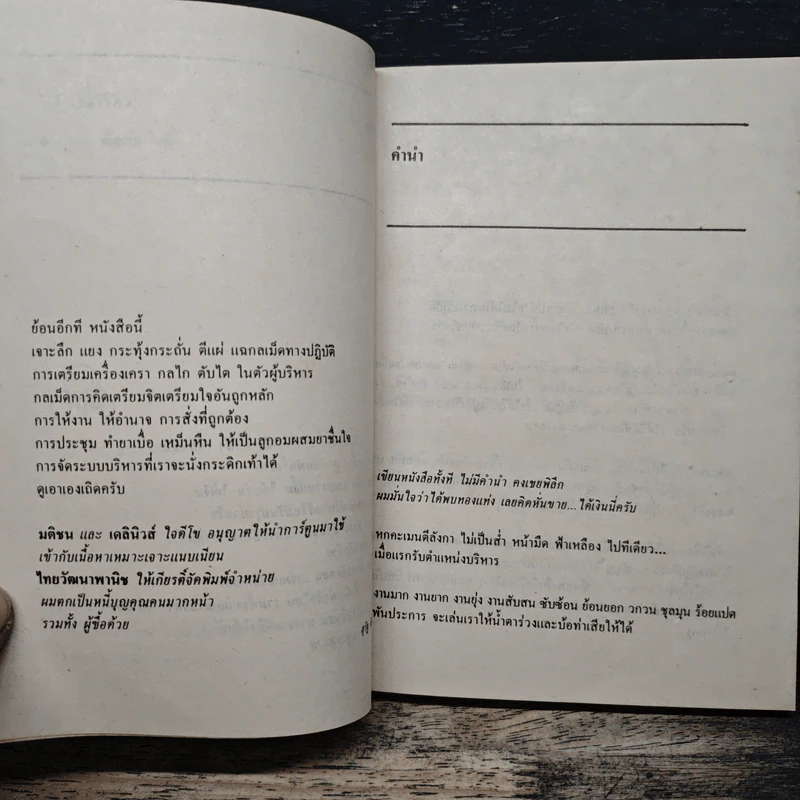 ย้อนอีกที หนังสือนี้
เจาะลึก แยง กระทุ้งกระถั่น ตีแผ่ แฉกลเม็ดทางปฏิบัติ
การเตรียมเครื่องเครา กลไก ตับไต ในตัวผู้บริหาร
กลเม็ดการคิดเตรียมจิตเตรียมใจอันถูกหลัก
การให้งาน ให้อำนาจ การสั่งที่ถูกต้อง
การประชุม ทำยาเบื่อ เหม็นหืน ให้เป็นลูกอมผสมยาชื่นใจ
การจัดระบบบริหารที่เราจะนั่งกระดิกเท้าได้
ดูเอาเองเถิดครับ
มติชน และ เดลินิวส์ ใจดีโข อนุญาตให้นำการ์ตูนมาใช้
เข้ากับเนื้อหาเหมาะเจาะแนบเนียน
ไทยวัฒนาพานิช ให้เกียรติ์จัดพิมพ์จำหน่าย
ผมตกเป็นหนี้บุญคุณคนมากหน้า
รวมทั้ง ผู้ซื้อด้วย
คำนำ
เขียนหนังสือทั้งที ไม่มีคำนำ คงเชยพิลึก
ผมมั่นใจว่าได้พบทองแท่ง เลยคิดหั่นขาย...ได้เงินนี่ครับ
หกคะเมนตีลังกา ไม่เป็นส่ำ หน้ามืด ฟ้าเหลือง ไปทีเดียว...
เมื่อแรกรับตำแหน่งบริหาร
งานมาก งานยาก งานยุ่ง งานสับสน ซับซ้อน ย้อนยอก วกวน ชุลมุน ร้อยแปด
พันประการ จะเล่นเราให้น้ำตาร่วงและบ้อท่าเสียให้ได้